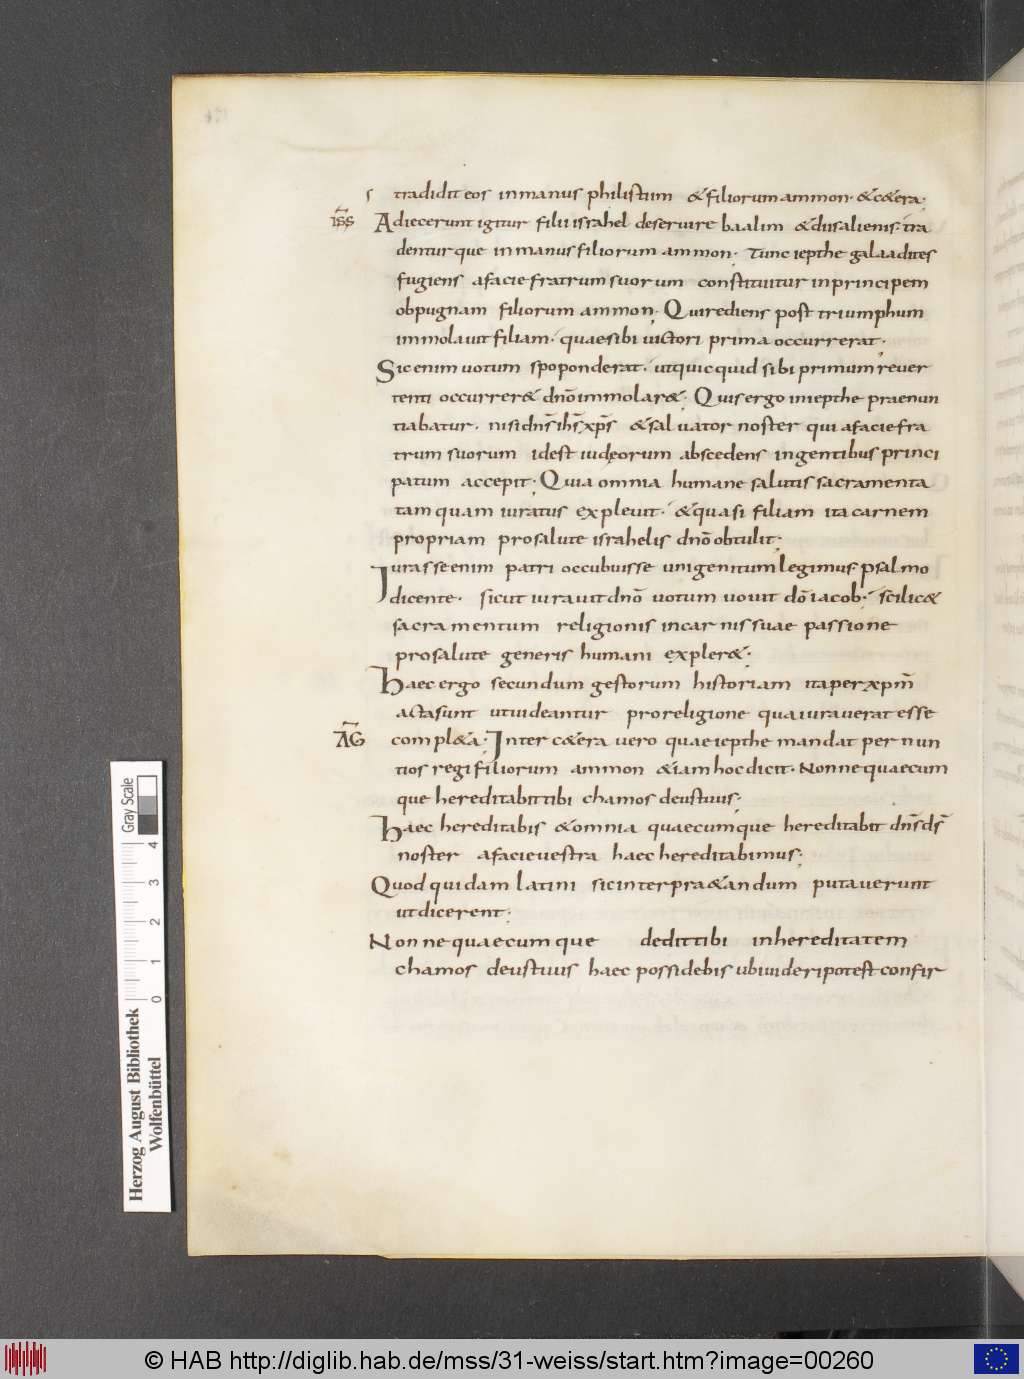 s tradidit eos in manus philistiim & filiorum ammon. & c&era;
is̄s Adiecerunt igitur filii israhel deservire baalim & diis alienis. tra
denturque in manus filiorum ammon. Tunc iepthe galaadites
fugiens a facie fratrum suorum constituitur in principem
ob pugnam filiorum ammon; Qui rediens post triumphum
immolavit filiam. quae sibi victori prima occurrerat;
Sic enim votum spoponderat. ut quicquid sibi primum rever
tenti occurrer& dno̅ immolar&; Quis ergo in iepthe praenun
tiabatur. nisi dn̅s ih̅s xp̅s & salvator noster qui a facie fra
trum suorum id est iudęorum abscedens in gentibus princi
patum accepit; Quia omnia humane salutis sacramenta
tamquam iuratus explevit. & quasi filiam ita carnem
propriam pro salute israhelis dno̅ obtulit;
Iurasse enim patri occubuisse unigenitum legimus psalmo
dicente. sicut iuravit dno̅ votum vovit do̅ iacob; scilic&
sacramentum religionis in carnis suae passione
pro salute generis humani expler&;
Haec ergo secundum gestorum historiam ita per xpm̅
acta sunt ut videantur pro religione qua iuraverat esse
ĀG compl&a; Inter c&era vero quae iepthe mandat per nun
tios regi filiorum ammon &iam hoc dicit. Nonne quaecum
que hereditabit tibi chamos deus tuus;
Haec hereditabis & omnia quaecumque hereditabit dn̅s ds̅
noster a facie vestra haec hereditabimus;
Quod quidam latini sic interpra&andum putaverunt
ut dicerent;
Nonne quaecumque dedit tibi in hereditatem
chamos deus tuus haec possidebis ubi videri potest confir
Gray Scale
4
3
2
1
0
Herzog August Bibliothek
Wolfenbüttel
© HAB http://diglib.hab.de/mss/31-weiss/start.htm?image=00260